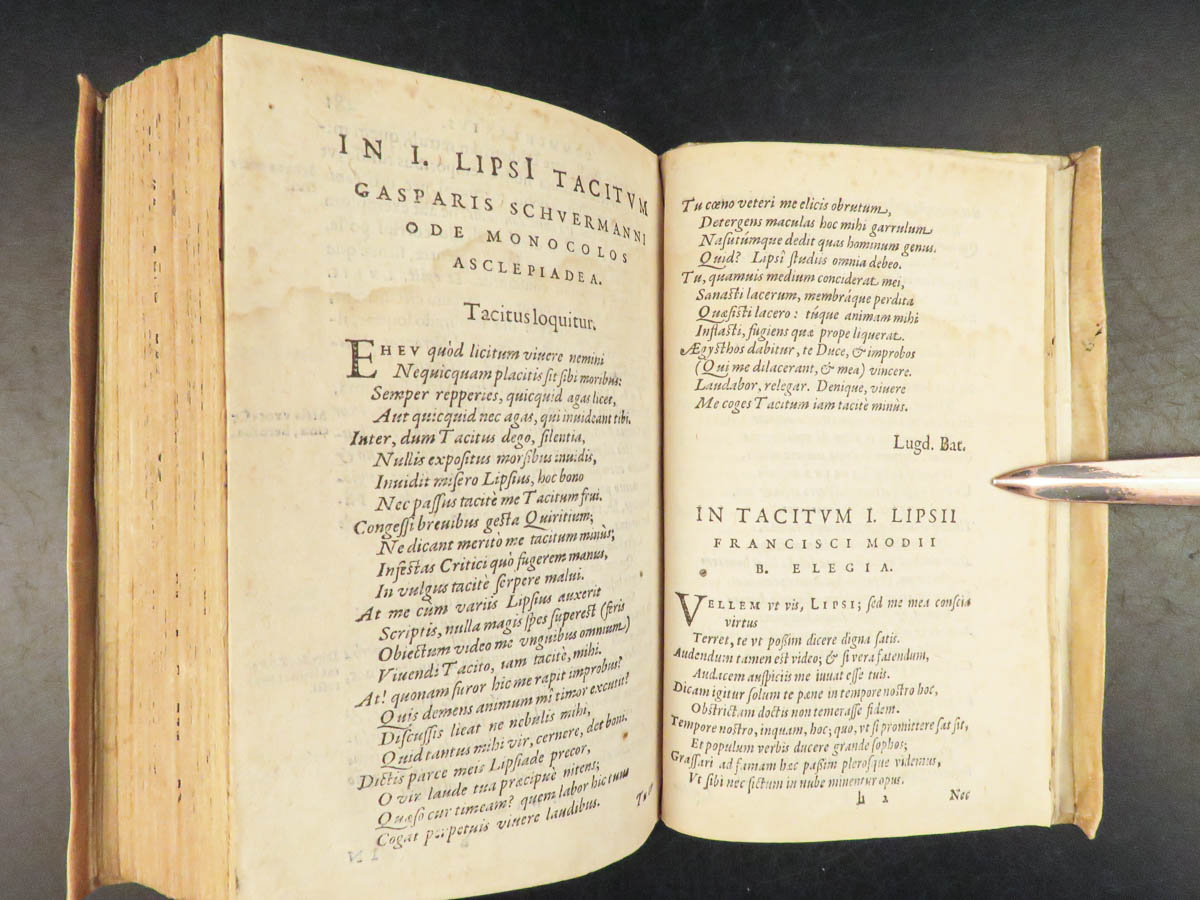 IN I. LIPSI TACITVM
GASPARIS SCHVERMANNI
ODE MONOCOLOS
ASCLEPIADEA.
Tacitus loquitur.
EHEV quòd licitum viuere nemini
Nequicquam placitis sit sibi moribus:
Semper repperies, quicquid agas licet,
Aut quicquid nec agas, qui inuideant tibi.
Inter, dum Tacitus dego, silentia,
Nullis expositus morsibus inuidis,
Inuidit misero Lipsius, hoc bono
Nec passus tacitè me Tacitum frui.
Congessi brevibus gesta Quiritium;
Ne dicant meritò me tacitum minùs;
Infestas Critici quò fugerem manus,
In vulgus tacitè serpere malui.
At me cùm variis Lipsius auxerit
Scriptis, nulla magis spes superest (feris
Obiectum video me vnguibus omnium)
Viuendi Tacito, iam tacitè, mihi.
At! quonam furor hic me rapit improbus?
Quis demens animum mî timor excutit?
Discussis liceat ne nebulis mihi,
Quid tantus mihi vir, cernere, det boni.
Dictis parce meis Lipsiade precor,
O vir laude tua præcipuè nitens;
Quæso cur timeam? quem labor hic tuus
Cogat perpetuis viuere laudibus.
Tu cœno veteri me elicis obrutum,
Detergens maculas hoc mihi garrulum
Nasutúmque dedit quas hominum genus.
Quid? Lipsi studiis omnia debeo.
Tu, quamuis medium conciderat mei,
Sanasti lacerum, membráque perdita
Quæsisti lacero: túque animam mihi
Inflasti, fugiens quæ prope liquerat.
Ægysthos dabitur, te Duce, & improbos
(Qui me dilacerant, & mea) vincere.
Laudabor, relegar. Denique, viuere
Me coges Tacitum iam tacitè minus.
Lugd. Bat.
IN TACITVM I. LIPSII
FRANCISCI MODII
B. ELEGIA.
VELLEM vt vis, LIPSI; sed me mea conscia
virtus
Terret, te vt possim dicere digna satis.
Audendum tamen est video; & si vera fatendum,
Audacem auspiciis me iuuat esse tuis.
Dicam igitur solum te pæne in tempore nostro hoc,
Obstrictam doctis non temerasse fidem.
Tempore nostro, inquam, hoc; quo, vt si promittere sat sit,
Et populum verbis ducere grande sophos;
Grassari ad famam hac passim plerosque videmus,
Vt sibi nec fictum in nube minentur opus.
h 2 Nec